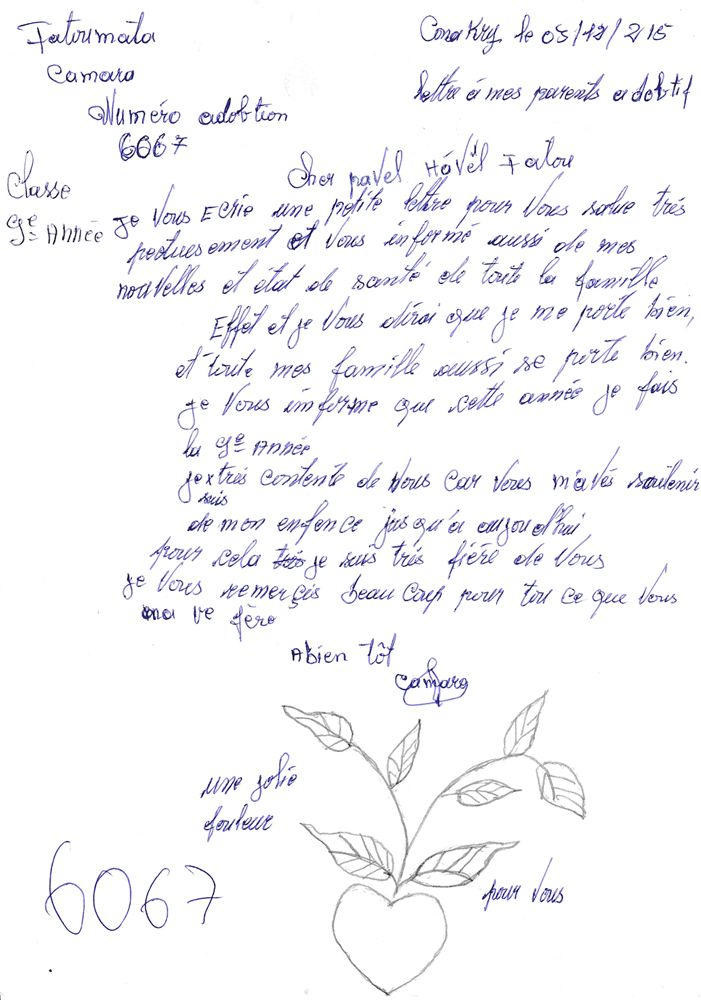 Fatoumata
Camara
Numéro adobtion
6067
Conakry le 05/12/215
lettre à mes parents adobtif
Classe
9e Année
Cher pavel Hável Fatou
je vous Ecrie une petite lettre pour vous salue très
pectuesement et vous informé aussi de mes
nouvelles et état de santé de toute la famille
Effet et je vous dirai que je me porte bien,
et toute mes famille aussi se porte bien.
je vous informe que cette année je fais
la 9e Année
je suis très contente de vous car vous m'avés soutenir
de mon enfence jusqu'a aujourd'hui
pour cela je suis très fière de vous
je vous remerçis beaucoup pour tou ce que vous
ma ve fère
Abien tôt
Camara
une jolie
fouleur
pour vous
6067